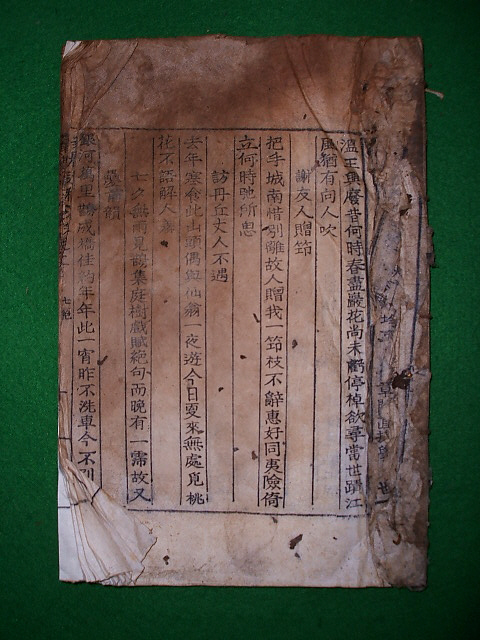 溫王興廢昔何時春盡巖花尚未虧停棹欲尋當世蹟江
風猶有向人吹
謝友人贈筇
把手城南惜別離故人贈我一筇枝不辭惠好同夷險倚
立何時馳所思
訪丹丘丈人不遇
去年寒食此山頭偶與仙翁一夜遊今日更來無處覓桃
花不語解人
七夕無雨見鵲集庭樹戲賦絶句而晚有一霈故又
銀河萬里鵲成橋佳約年年此一宵昨不洗車今不
七絶